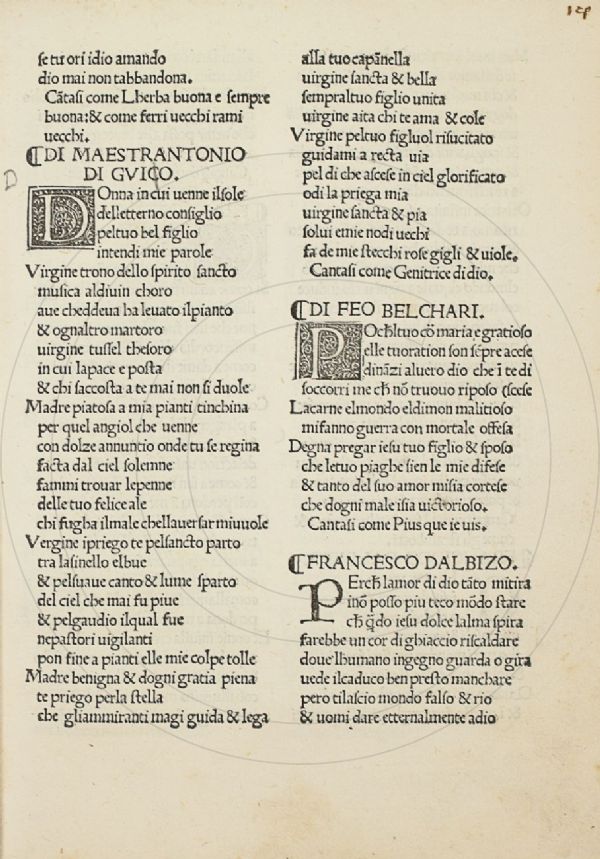 se tu ori idio amando
dio mai non tabbandona.
Cãtasi come Lherba buona e sempre
buona:& come ferri uecchi rami
uecchi.
⁋DI MAESTRANTONIO
DI GVICO.
D
DOnna in cui uenne ilsole
delletterno consiglio
peltuo bel figlio
intendi mie parole
Virgine trono dello spirito sancto
musica aldiuin choro
aue cheddeua ha leuato ilpianto
& ognaltro martoro
uirgine tussel thesoro
in cui lapace e posta
& chi saccosta a te mai non si duole
Madre piatosa a mia pianti tinchina
per quel angiol che uenne
con dolze annuntio onde tu se regina
facta dal ciel solemne
fammi trouar lepenne
delle tuo felice ale
chi fugha ilmale chellauersar miuuole
Vergine ipriego te pelsancto parto
tra lasinello elbue
& pelsuaue canto & lume sparto
del ciel che mai fu piue
& pelgaudio ilqual fue
nepastori uigilanti
pon fine a pianti elle mie colpe tolle
Madre benigna & dogni gratia piena
te priego perla stella
che gliammiranti magi guida & lega
alla tuo capãnella
uirgine sancta & bella
sempraltuo figlio unita
uirgine aita chi te ama & cole
Virgine peltuo figluol risucitato
guidami a recta uia
pel di che ascese in ciel glorificato
odi la priega mia
uirgine sancta & pia
solui emie nodi uechi
fa de mie stecchi rose gigli & uiole.
Cantasi come Genitrice di dio.
⁋DI FEO BELCHARI.
POcħltuo cõ maria e gratioso
elle tuoration son sẽpre accese
dinãzi aluero dio che ĩ te di
soccorri me cħ nõ truouo riposo (scese
Lacarne elmondo eldimon malitioso
mifanno guerra con mortale offesa
Degna pregar iesu tuo figlio & sposo
che letuo piaghe sien le mie difese
& tanto del suo amor misia cortese
che dogni male isia uictorioso.
Cantasi come Pius que ie uis.
⁋FRANCESCO DALBIZO.
PErcħ lamor di dio tãto mitira
inõ posso piu teco mõdo stare
cħ q̃do iesu dolce lalma spira
farebbe un cor di ghiaccio riscaldare
doue lhumano ingegno guarda o gira
uede ilcaduco ben presto manchare
pero tilascio mondo falso & rio
& uomi dare etternalmente adio